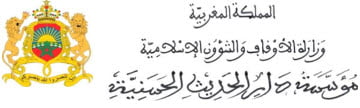 المملكة المغربية
وزارة الأوقاف والشؤون الإسلامية
مؤسسة دار الحديث الحسنية